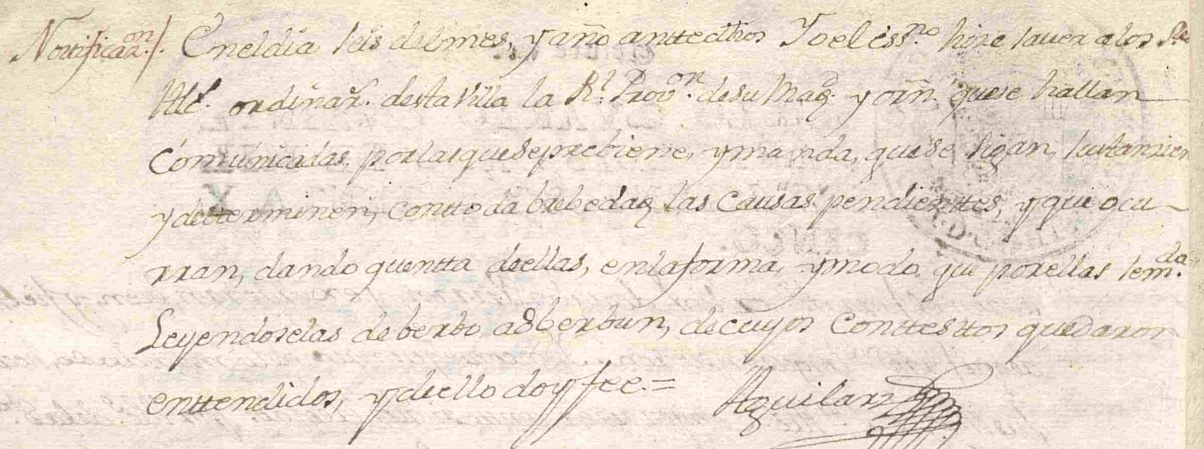 Notificaon./. En el dia seis del mes, y año anttedhos Yo el essno hize saver a los Sres
Alcs. ordinars. desta Villa la Rl. Provon. de su Magd. y orn. que se hallan
comunicadas, por las que se prebiene, y manda, que se sigan, sustanzien
y determinen, contoda brebedad, las Causas pendienttes, y que ocu-
rran, dando quentta de ellas, en la forma, y modo, que por ellas se mda.
Leyendoselas de berbo adberbun, de cuyos Conttesttos quedaron
enttendidos, y de ello doy fee.= Aguilar